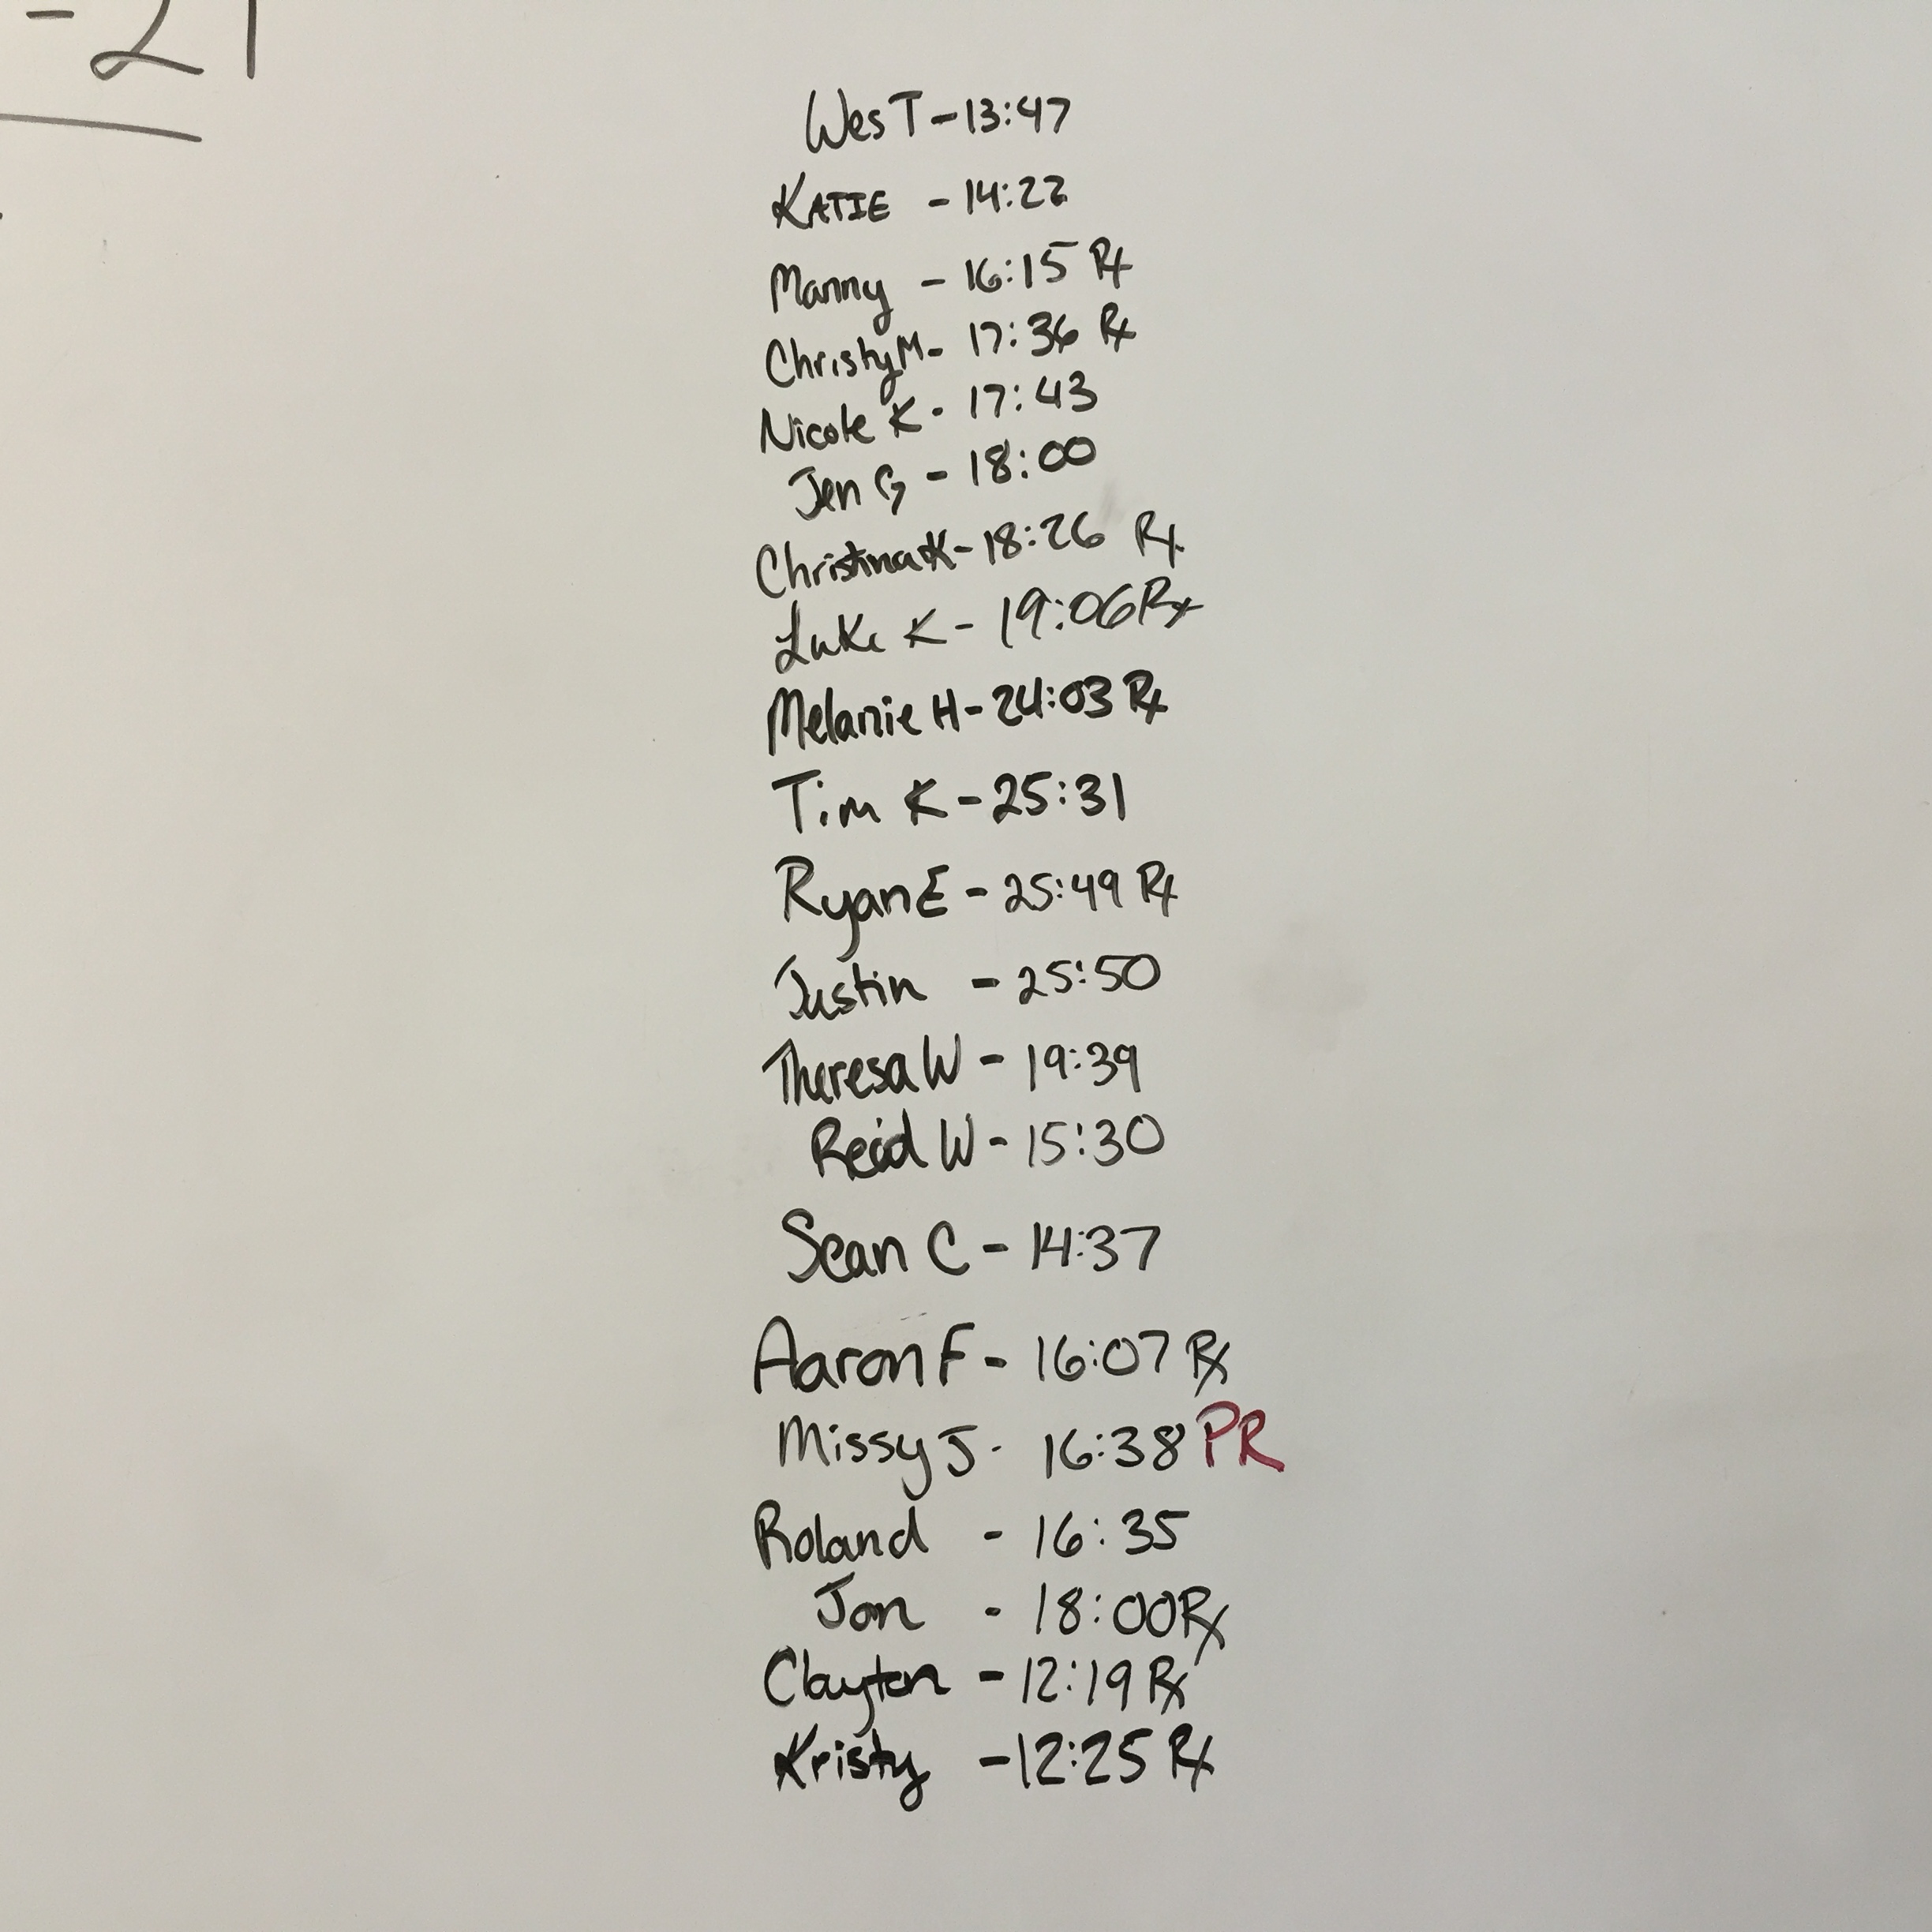 -21
Wes T - 13:47
KATIE - 14:22
Manny - 16:15 Rx
Christy M - 17:36 Rx
Nicole K - 17:43
Jen G - 18:00
Christina K - 18:26 Rx
Luke K - 19:06 Rx
Melanie H - 24:03 Rx
Tim K - 25:31
Ryan E - 25:49 Rx
Justin - 25:50
Theresa W - 19:39
Reid W - 15:30
Sean C - 14:37
Aaron F - 16:07 Rx
Missy J - 16:38 PR
Roland - 16:35
Jon - 18:00 Rx
Clayton - 12:19 Rx
Kristy - 12:25 Rx